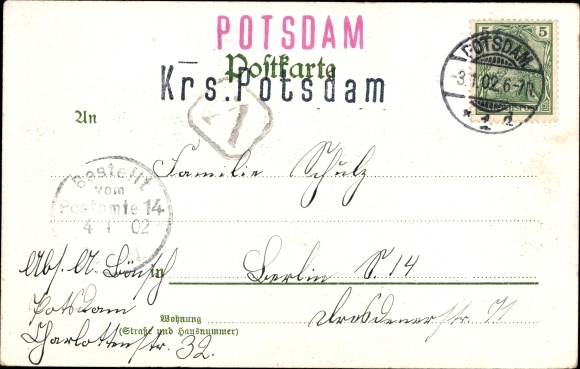 POTSDAM
Postkarte
Krs. Potsdam
5 5
POTSDAM
-3.1.02. 6-7N.
* 1 d
1
An
Familie Schulz
Bestellt
vom
Postamte 14
4 1 02
Berlin S. 14
in
Dresdenerstr. 71
Abs. A. Bönsch
Potsdam
Charlottenstr. 32.
Wohnung
(Straße und Hausnummer)